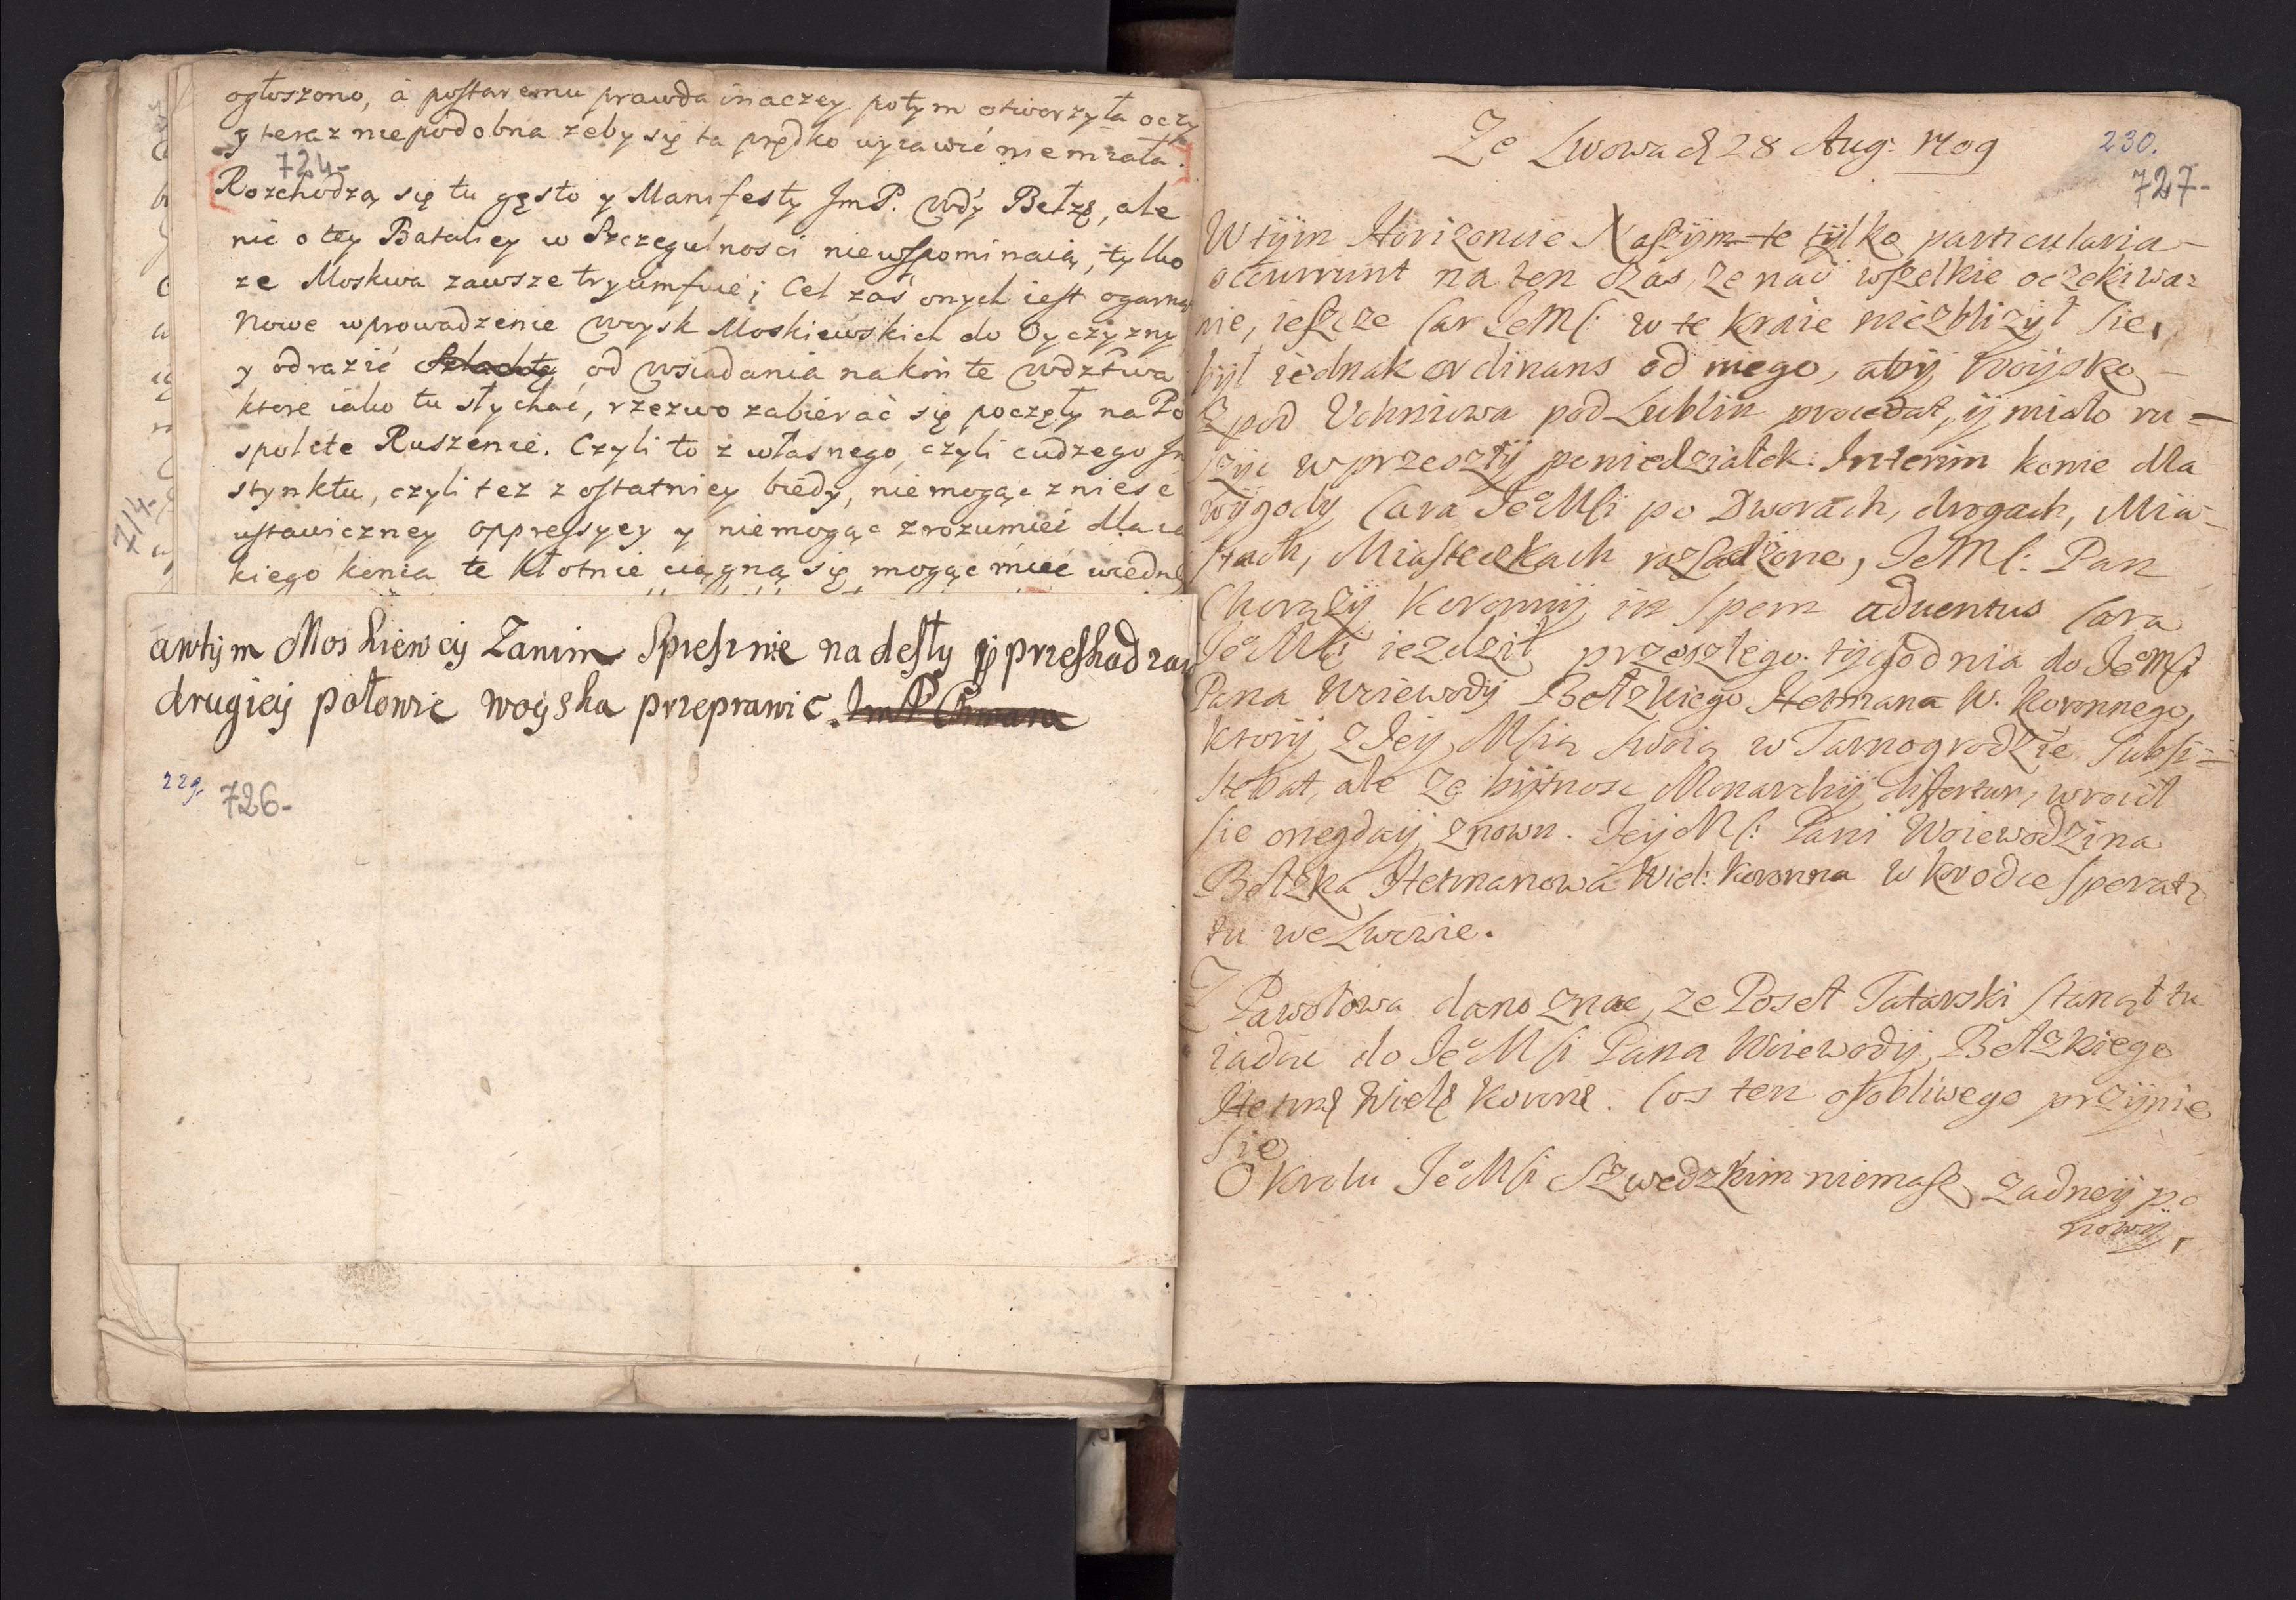 ogłoszono, á postaremu prawda inaczey potym otworzyła oczy
y teraz niepodobna żeby się ta prędko wyiawić nie miała.
724-
Rozchodzą się tu gęsto y Manifesty JmP. Wdy Bełzº, ale
nic o tey Bataliey w Szczegulnosci niewspominaią, tylko
ze Moskwa zawsze tryumfuie; Cel zaś onych iest ogarnąć
Nowe wprowadzenie Woysk Moskiewskich do Oyczyzny
y odrazić Szlachtę od wsiadania na koń te Wdztwa
ktore iako tu słychać, rzezwo zabierać się poczęły na Po
spolite Ruszenie. Czyli to z własnego, czyli cudzego Jn
stynktu, czyli tez z ostatniey biédy, niemogąc znieść
ustawiczney oppressyey y niemogąc zrozumieć dla ia
kiego końca te Kłotnie ciągną się mogąc mieć
714-
awtym Moskiewcy Zanim Spiesznie nadeszły y przeszkadzaią
drugiey połowie woyska przeprawic.
229.
726-
Ze Lwowa d 28 Aug: 1709
230.
727-
W tÿm Horizoncie Naszÿm te tÿlko particularia
occurrunt na ten czas, ze nad wszelkie oczekiwa=
nie, ieszcze Car JeMs: w te kraie niezbliżÿł sie,
bÿł iednak ordinans od niego, abÿ woÿsko
Z pod Uchniowa pod Lublin procedat, ÿ miało ru=
szÿc w przeszłÿ poniedziałek. Interim konie dla
wÿgodÿ Cara JeºMsi po Dworach, drogach, Mia=
stach, Miasteczkach rozsadzone, JeMs: Pan
Chorązÿ Koronnÿ in spem adventus Cara
JeºMsi iezdził przeszłego tÿgodnia do JeºMsi
Pana Woiewodÿ Bełzkiego Hetmana W. Koronnego,
ktorÿ z Jeÿ Mscią swoią w Tarnogrodzie subsi=
stebat, ale ze bÿtnosc Monarchÿ differtur, wrocił
sie onegdaÿ znowu. JeÿMs: Pani Woiewodzina
Bełzka Hetmanowa Wiel: Koronna wkrodce speratr
tu we Lwowie.
Z Pawołowa dano znac, ze Poseł Tatarski stanął tu
iadąc do JeºMsi Pana Woiewodÿ Bełzkiego
Hetmº Wielº Koronº. Cos ten osobliwego przÿnie
sie
O Krolu JeºMsi Szwedzkim niemasz zadneÿ po
nowÿ,